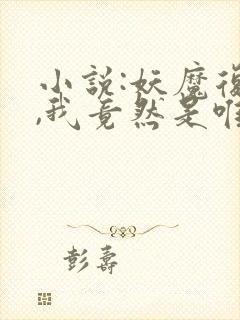 小說:妖魔復
,我竟然是唯
彭壽